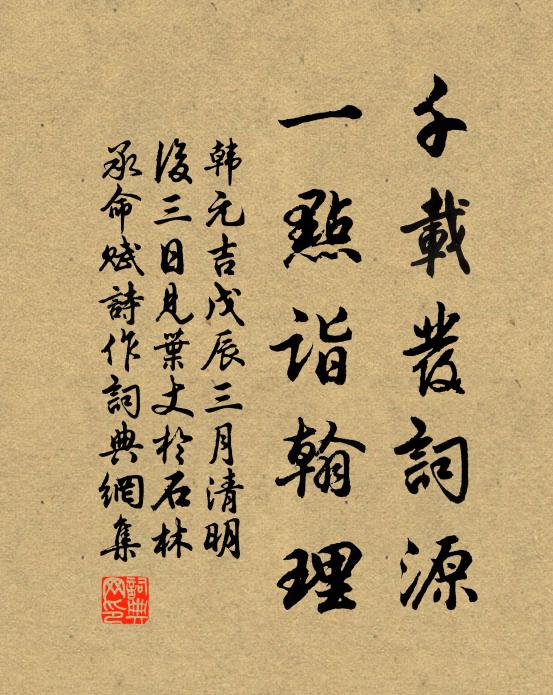 千載發詞源
一點詣翰理
韩元吉戊辰三月清明
後三日見葉丈於石林
承命赋詩作詞典網集
詞典网印